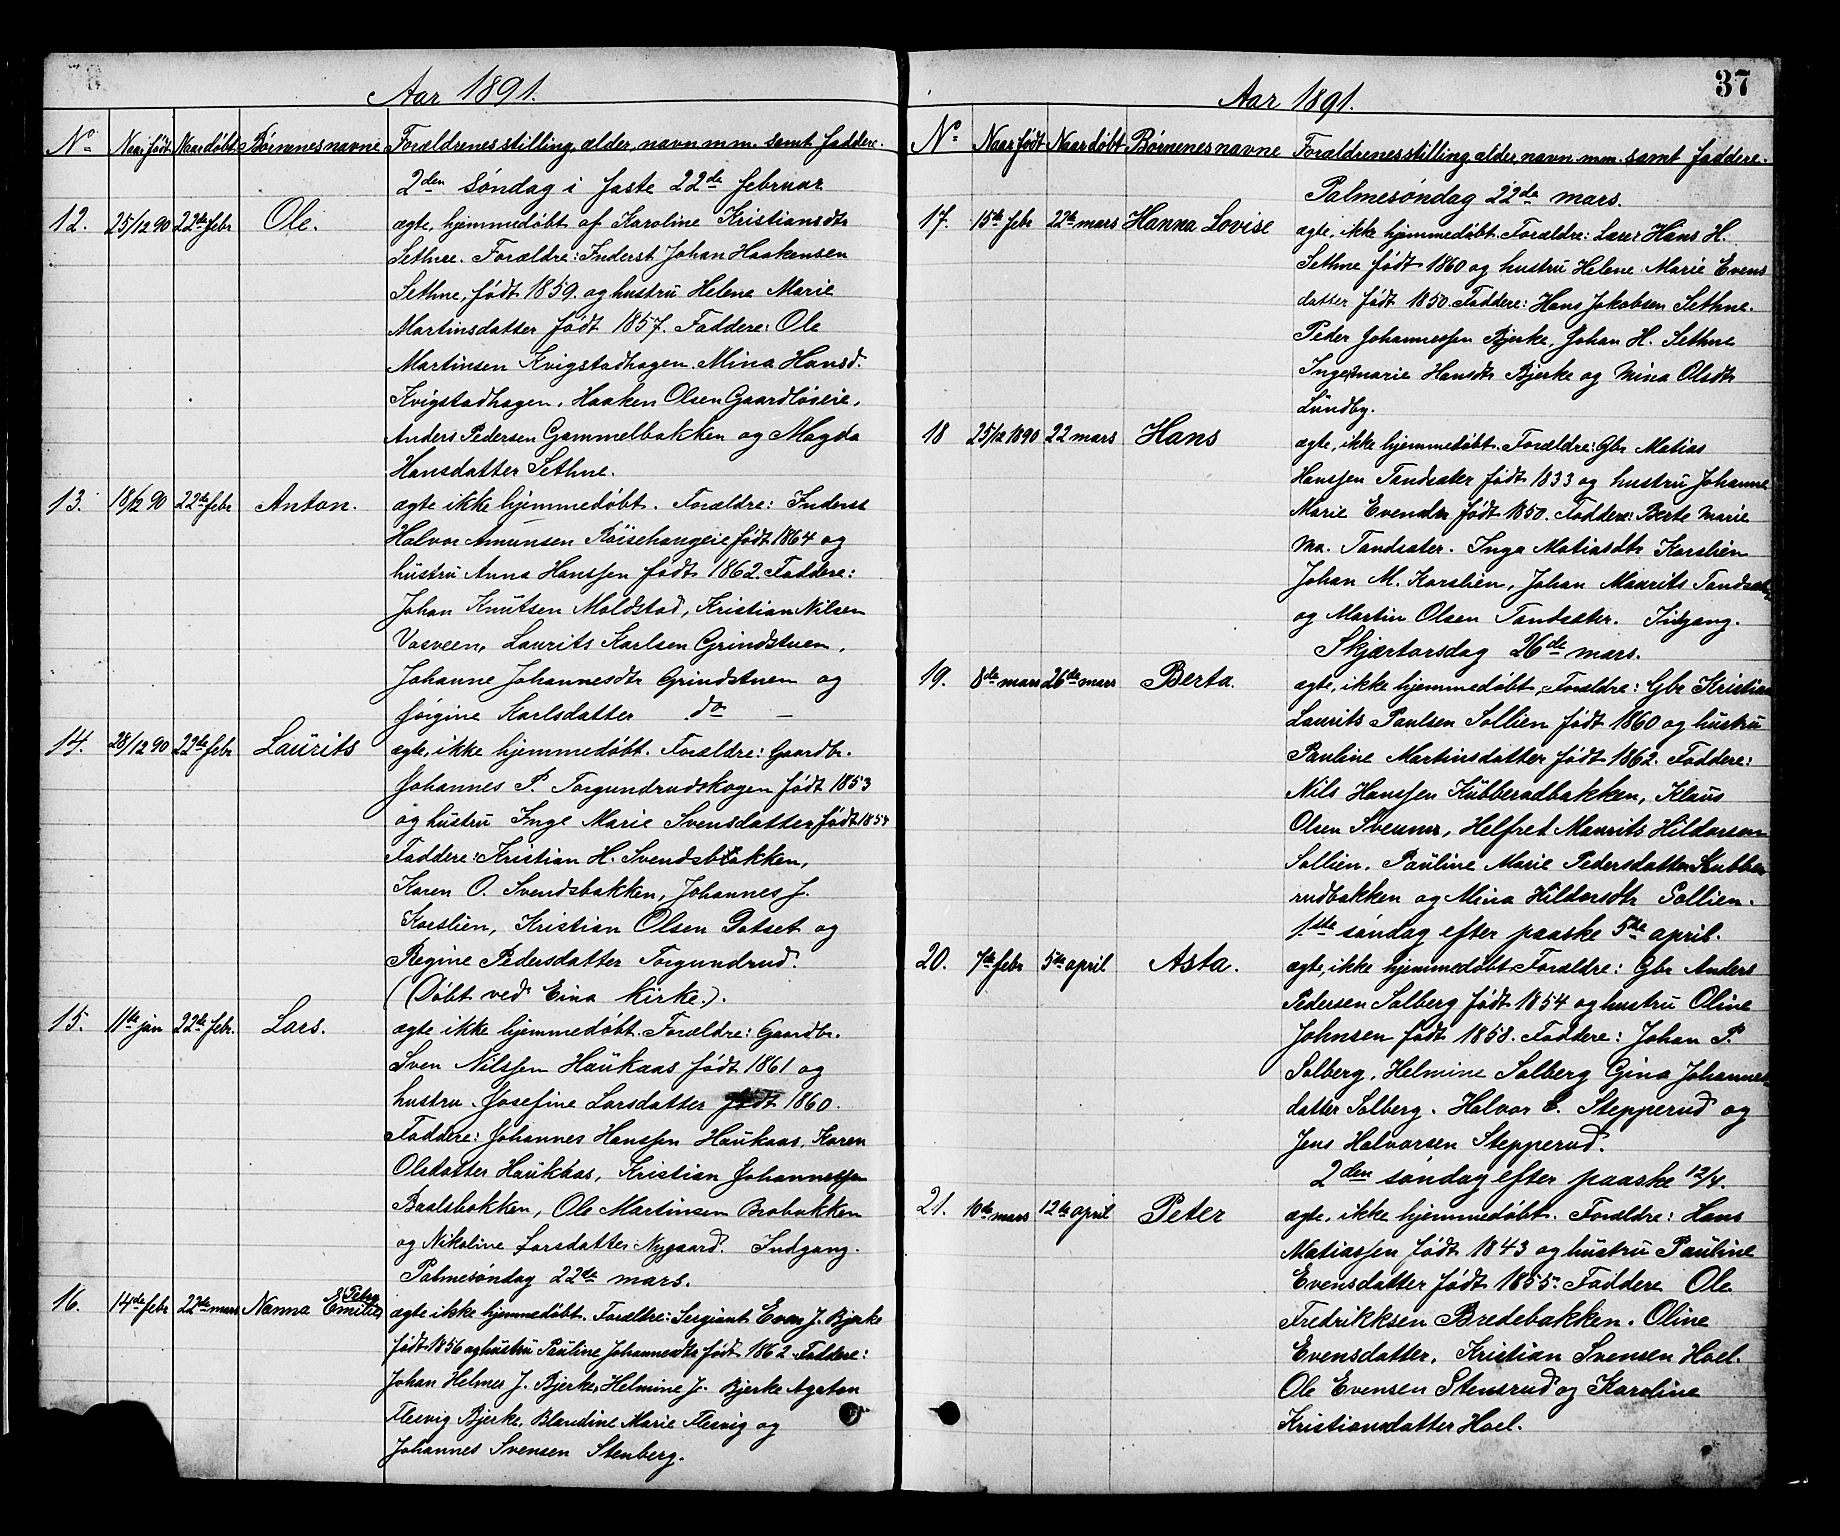 Aar 1891.
No Naar født Naar døbt Børnenes navne Forældrenes stilling, alder, navn m.m. samt faddere.
2den Søndag i faste 22de februar
12. 25/12 90 22de febr Ole. ægte, hjemmedøbt af Karoline Kristiansdtr
Sethne. Forældre: Inderst Johan Haakensen
Sethne, født 1859. og hustru Helene Marie
Martinsdatter født 1857. Faddere: Ole
Martinsen Kvigstadhagen. Mina Hansd.
Kvigstadhagen, Haaken Olsen Gaardløseie,
Anders Pedersen Gammelbakken og Magda
Hansdatter Sethne.
13. 18/12 90 22de febr Anton. ægte ikke hjemmedøbt. Forældre: Inderst
Halvor Amunsen Røisehaugeie født 1864 og
hustru Anna Hanssen født 1862. Faddere:
Johan Knutsen Moldstad, Kristian Nilsen
Vasveen, Laurits Karlsen Grindstuen,
Johanne Johannesdtr Grindstuen og
Jørgine Karlsdatter do —
14. 28/12 90 22de febr Laurits ægte, ikke hjemmedøbt. Forældre: Gaardbr.
Johannes P. Torgundrudskogen født 1853
og hustru Inge Marie Svensdatter født 1854
Faddere: Kristian H. Svendsbakken,
Karen O. Svendsbakken, Johannes J.
Korslien, Kristian Olsen Gotset og
Regine Pedersdatter Torgundrud.
(Døbt ved Eina kirke.).
15. 11te jan 22de febr. Lars. ægte ikke hjemmedøbt. Forældre: Gaardbr.
Sven Nilssen Haukaas født 1861 og
hustru Josefine Larsdatter født 1860.
Faddere: Johannes Hanssen Haukaas, Karen
Olsdatter Haukaas, Kristian Johannessen
Baalsbakken, Ole Martinsen Brobakken
og Nikoline Larsdatter Nygaard. Indgang.
Palmesøndag 22de mars.
16. 14de febr 22de mars Nanna Petra Emilie, ægte ikke hjemmedøbt. Forældre: Sergiant Even J. Bjerke
født 1856 og hustru Pauline Johannesdtr født 1862. Faddere:
Johan Helmer J. Bjerke, Helmine J. Bjerke Agaton
Flesvig Bjerke, Blandine Marie Flesvig og
Johannes Svensen Stenberg.
37
Aar 1891.
No Naar født Naar døbt Børnenes navne Forældrenes stilling, alder, navn m.m. samt faddere.
Palmesøndag 22de mars.
17. 15de febr 22de mars Hanna Lovise ægte, ikke hjemmedøbt. Forældre: Lærer Hans H.
Sethne født 1860 og hustru Helene Marie Evens
datter født 1850. Faddere: Hans Jakobsen Sethne.
Peder Johannessen Bjerke, Johan H. Sethne
Ingemarie Hansdtr Bjerke og Mina Olsdtr
Lundby.
18 25/12 1890 22 mars Hans ægte, ikke hjemmedøbt. Forældre: Gbr Matias
Hanssen Tandsæter født 1833 og hustru Johanne
Marie Evensdtr født 1850. Faddere: Berte Marie
Ma. Tandsæter. Inga Matiasdtr Korslien
Johan M. Korslien, Johan Maurits Tandsæter
og Martin Olsen Tandsæter. Indgang.
Skjærtorsdag 26de mars.
19. 8de mars 26de mars Berta. ægte, ikke hjemmedøbt, Forældre: Gbr Kristian
Laurits Paulsen Sollien født 1860 og hustru
Pauline Martinsdatter født 1862. Faddere:
Nils Hanssen Kubberudbakken, Klaus
Olsen Sveum, Helfred Maurits Hildorsen
Sollien. Pauline Marie Pedersdatter Kubbe
rudbakken og Mina Hildorsdtr Sollien.
1ste søndag efter paaske 5te april.
20. 7de febr 5te april Asta. ægte, ikke hjemmedøbt. Forældre: Gbr Anders
Pedersen Solberg født 1854 og hustru Oline
Johnsen født 1858. Faddere: Johan P.
Solberg, Helmine Solberg Gina Johannes
datter Solberg. Halvor E. Stepperud og
Jens Halvorsen Stepperud.
2den søndag efter paaske 12/4.
21. 10de mars 12te april Peter ægte, ikke hjemmedøbt. Forældre: Hans
Matiassen født 1843 og hustru Pauline
Evensdatter født 1855. Faddere Ole
Fredrikksen Bredebakken. Oline
Evensdatter, Kristian Svensen Hoel.
Ole Evensen Stensrud og Karoline
Kristiansdatter Hoel.